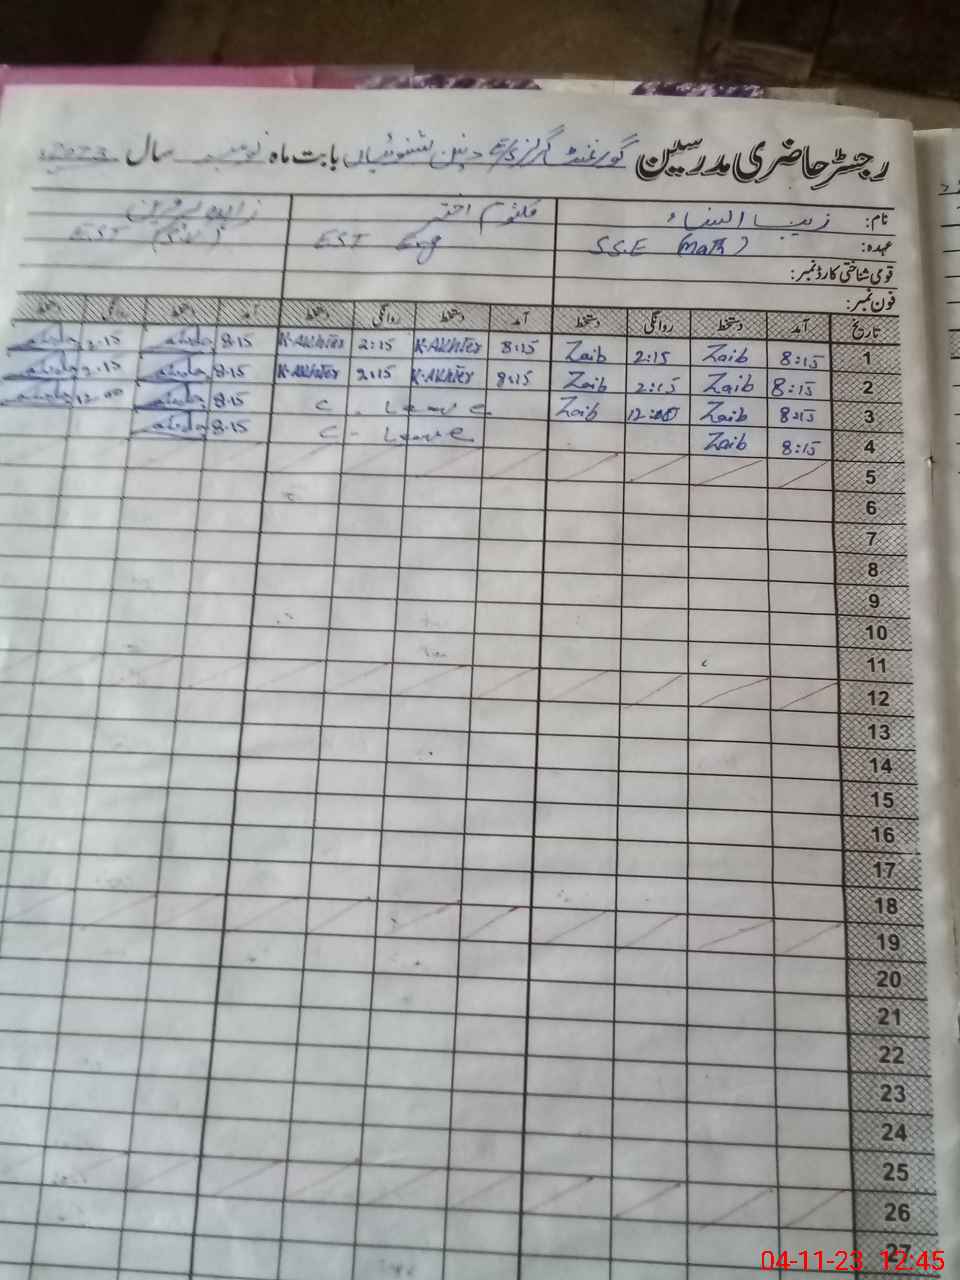 رجسٹر حاضری مدرسین گورنمنٹ گرلز E/S بابت ماہ نومبر سال 2023
نام: زیب النساء کلثوم اختر زاہدہ پروین
عہدہ: S.S.E (Math) E.S.T Eng E.S.T
قومی شناختی کارڈ نمبر:
فون نمبر:
تاریخ آمد دستخط روانگی دستخط آمد دستخط روانگی دستخط آمد دستخط روانگی دستخط
1 8:15 Zaib 2:15 Zaib 8:15 K-Akhter 2:15 K-Akhter 8.15 2.15
2 8:15 Zaib 2:15 Zaib 8:15 K-Akhter 2:15 K-Akhter 8.15 2.15
3 8:15 Zaib 12:00 Zaib C. Leave 8.15 12.00
4 8:15 Zaib C - Leave 8.15
5
6
7
8
9
10
11
12
13
14
15
16
17
18
19
20
21
22
23
24
25
26
27
04-11-23 12:45